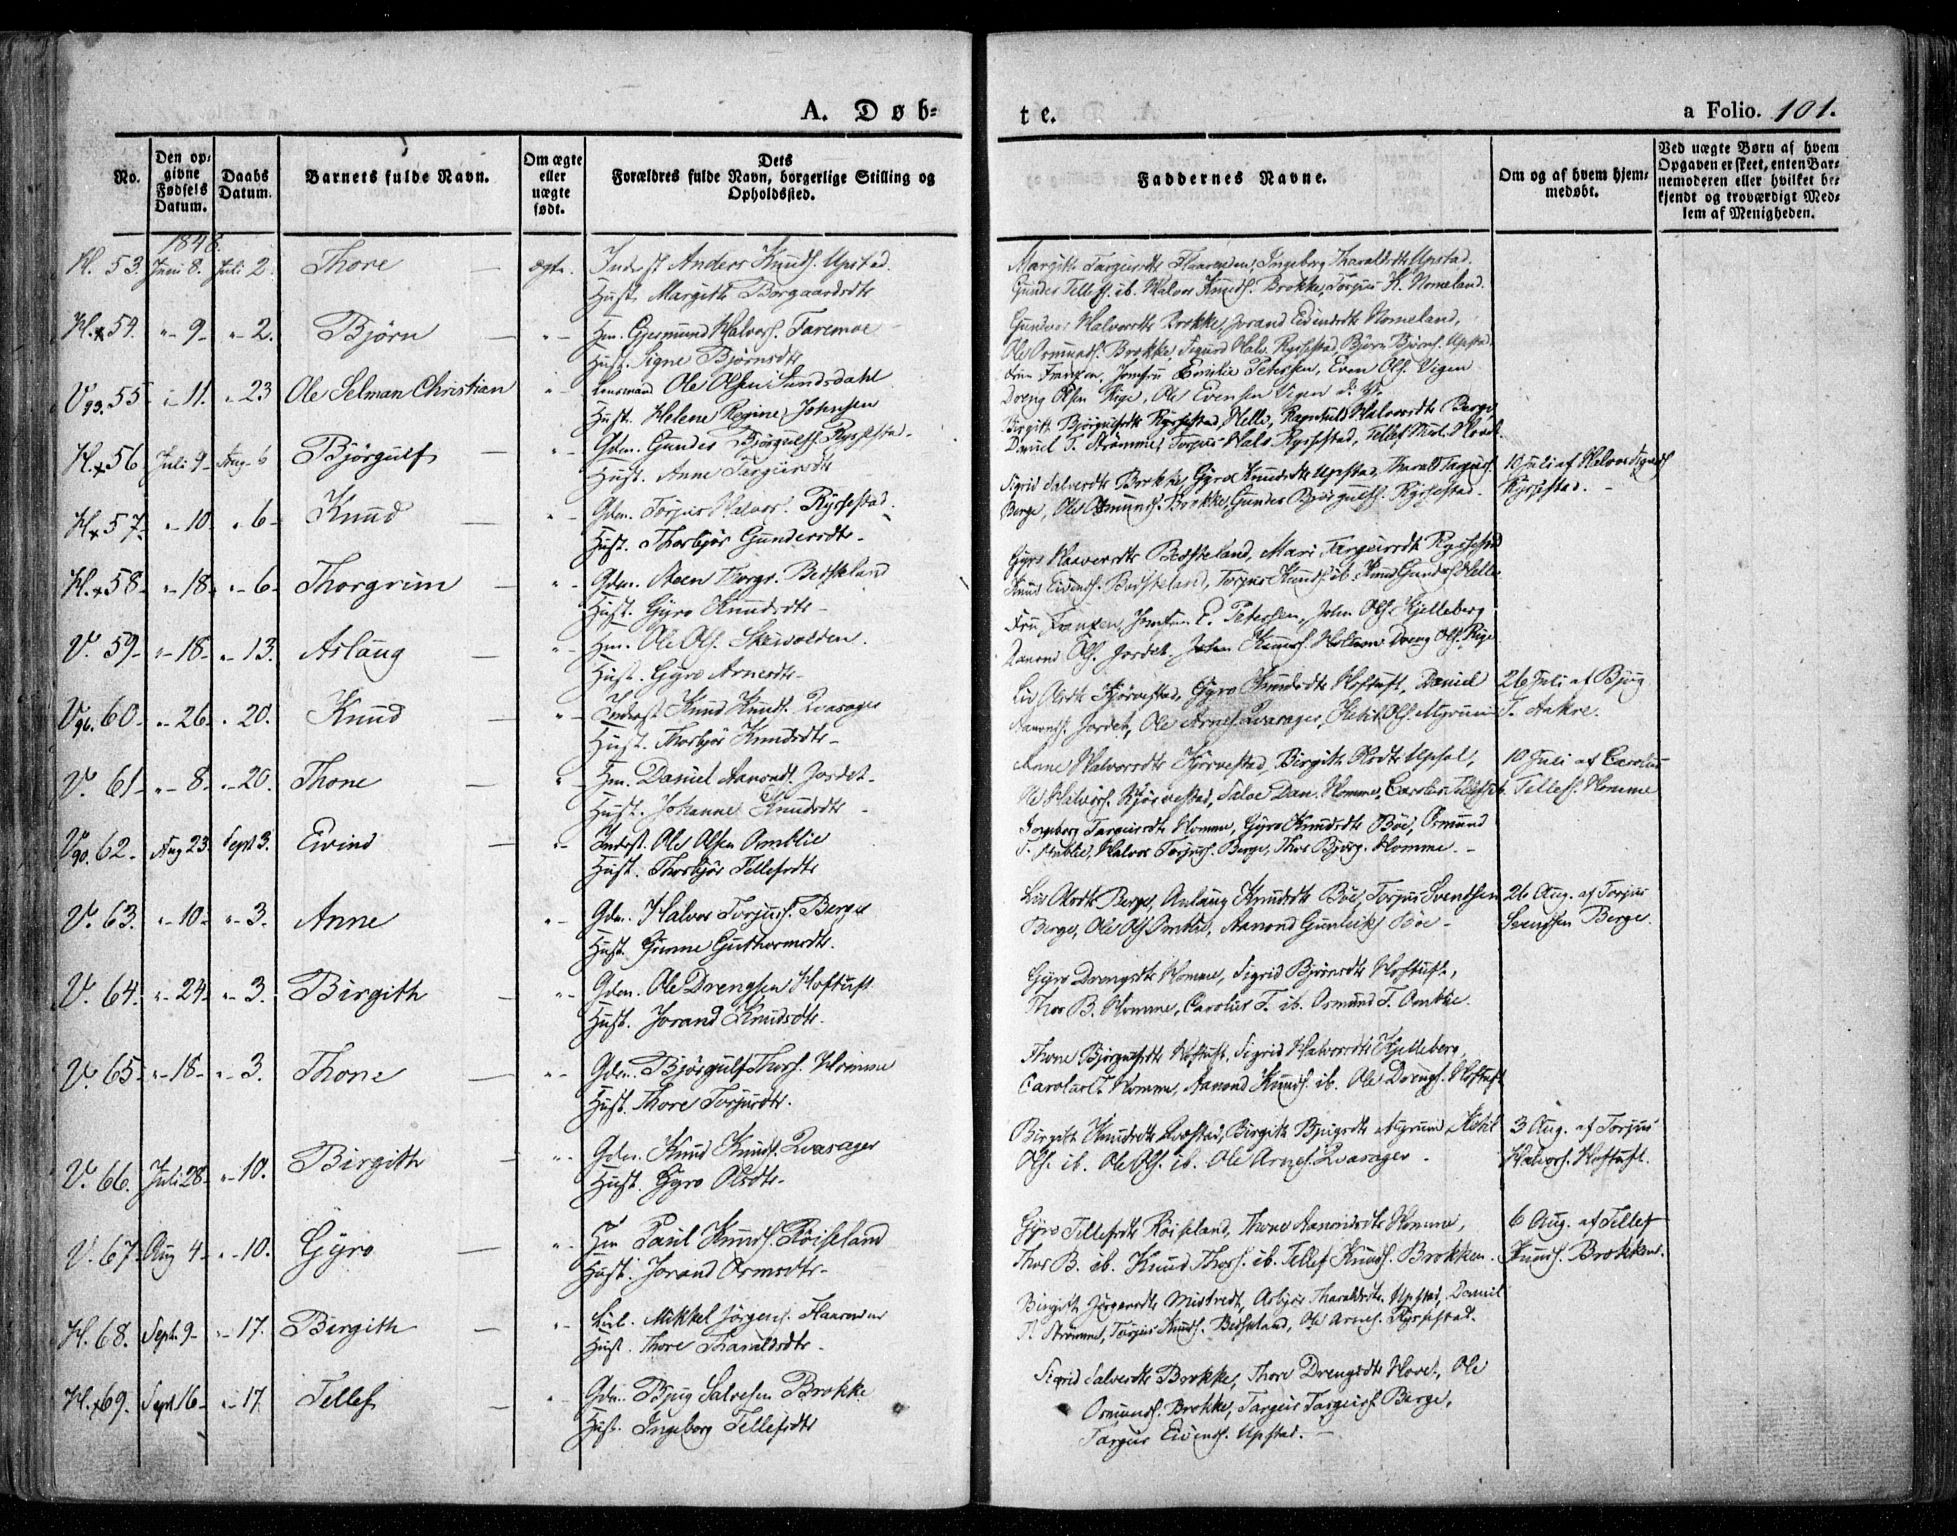 A. Døb=
te.
a Folio. 101.
No.
Den op=
givne
Fødsels
Datum.
Daabs
Datum.
Barnets fulde Navn.
Om ægte
eller
uægte
født.
Dets
Forældres fulde Navn, borgerlige Stilling og
Opholdssted.
Faddernes Navne.
Om og af hvem hjem=
medøbt.
Ved uægte Børn af hvem
Opgaven er skeet, enten Bar=
nemoderen eller hvilket be=
kjendt og troværdigt Med=
lem af Menigheden.
1848.
H. 53. Juni 8. Juli 2. Thore — ægte. Inderst Anders Knuds. Upstad.
Hust. Margith Borgaardsdtr
Margith Targeirsdtr Flaarenden, Ingeborg Tharaldsdtr Upstad.
Gunder Tellefs. ib. Halvor Knuds. Brokke, Torjus K. Nomeland.
H. x 54. " - 9 - " - 2. Bjørn — " - Hm. Gjermund Halvors. Faremoe
Hust. Signe Bjørnsdtr
Gunvor Halvorsdtr Brokke, Jorand Eivindsdtr Nomeland,
Ole Osmunds. Brokke, Sigurd Halv. Rysstad, Bjørn Bjørns. Upstad.
V. 93. 55 - " - 11. " - 23 Ole Selman Christian " - Lensmand Ole Olsen Sundsdahl
Hust. Helene Regine Johnsen
Fru Frantzen, Jomfru Emilie Petersen, Even Ols. Vigen
Dreng Olsen Rige, Ole Evensen Vigen
H. x 56 Juli 9 - Aug. 6 Bjørgulf — " - Gdm. Gunder Bjørgulfs. Rysstad.
Hust. Anne Targeirsdtr
Birgith Bjørgulfsdtr Rysstad, Helle, Ragnhild Halvorsdtr Berge
Daniel T. Strømme, Torjus Halv. Rysstad, Tellef
H. x 57. " - 10 - " - 6 - Knud — " - Gdm. Torjus Halvors. Rysstad.
Hust. Thorbjør Gundersdtr.
Sigrid Salvesdtr Brokke, Gyro Knudsdtr Upstad, Tharald Targeirs.
Berge, Ole Osmunds. Brokke, Gunder Bjørgulfs. Rysstad.
10 Juli af Halvor
Rysstad.
H. x 58 - " - 18 - " - 6 - Thorgrim — " - Gdm. Steen Thorgr. Besteland
Hust. Gyro Knudsdtr -
Gyro Halvorsdtr Besteland, Mari Targeirsdtr Rysstad
Knud Eivinds. Besteland, Torjus Knuds. ib. Knud Gunders. Helle
V. 59 - " - 18 - " - 13. Aslaug — " - Hm. Ole Ols. Skevolden.
Hust. Gyro Arnesdtr -
Fru Frantzen, Jomfru E. Petersen, John Ols. Kjelleberg
Aanond Ols. Jordet, Johan Knuds. Dreng Ols. Rige
V. 96. 60 - " - 26. " 20. Knud — " - Inderst Knud Knuds. Qvasager
Hust. Thorbjør Knudsdtr -
Liv Olsdtr Kjørvestad, Gyro Knudsdtr Hoftuft, Daniel
Aanonds. Jordet, Ole Arnes. Qvasager, Ketil Ols. Myrum
26 Juli af Bjug
T. Aakre.
V. 61 - " - 8 - " - 20. Thone — " Hm. Daniel Aanonds. Jordet -
Hust. Johanne Knudsdtr -
Anne Halvorsdtr Kjørvestad, Birgith Olsdtr Upsal,
Ole Halvors. Kjørvestad, Salve Dan. Homme, Carolus Tellefs.
10 Juli af Carolus
Tellefs. Homme
V. 90. 62. Aug 23 Sept 3. Eivind — " - Inderst. Ole Olsen Omblie
Hust. Thorbjør Tellefsdtr
Ingeborg Targeirsdtr Homme, Gyro Knudsdtr Bøe, Osmund
T. Omblie, Halvor Torjus. Berge, Thor Bjørg. Homme. -
V. 63. " - 10 - " - 3. Anne " - Gdm. Halvor Torjus. Berge
Hust. Gunne Guthormsdtr.
Liv Olsdtr Berge, Anlaug Knudsdtr Bøe, Torjus Svendsen
Berge, Ole Ols. Omblie, Aanond Gunleiks. Bøe -
26 Aug. af Torjus
Svendsen Berge.
V. 64. " - 24 - " - 3. Birgith — " - Gdm. Ole Drengsen Hoftuft
Hust. Jorand Knudsdtr.
Gyro Drengsdtr Homme, Sigrid Bjørnsdtr Hoftuft,
Thor B. Homme, Carolus T. ib. Osmund T. Omblie.
V. 65 - " - 18 - " - 3. Thone — " - Gdm. Bjørgulf Thors. Homme
Hust. Thore Torjusdtr.
Thone Bjørgulfsdtr Hoftuft, Sigrid Halvorsdtr Kjelleberg,
Carolus T. Homme, Aanond Knuds. ib. Ole Drengs. Hoftuft
V. 66. Juli 28 - " - 10. Birgith — " - Gdm. Knud Knuds. Qvasager
Hust. Gyro Olsdtr -
Birgith Knudsdtr Qvestad, Birgith Bjugsdtr Myrum, Ketil
Ols. ib. Ole Ols. ib. Ole Arnes. Qvasager -
3 Aug. af Torjus
Halvors. Hoftuft.
V. 67. Aug 4 - " - 10. Gyro — " - Hm Paul Knuds. Røiseland
Hust. Jorand Ormsdtr -
Gyro Tellefsdtr Røiseland, Thone Aanondsdtr Homme,
Thor B. ib. Knud Thors. ib. Tellef Knuds. Brokken.
6 Aug. af Tellef
Knuds. Brokken.
H. 68. Sept. 9 - " - 17. Birgith — " - Mikkel Jørgens. Flaarenden
Hust. Thore Tharaldsdtr -
Birgith Jørgensdtr Mistredt, Asbjør Tharaldsdtr Upstad, Daniel
T. Strømme, Torjus Knuds. Besteland, Ole Arnes. Rysstad.
H. x 69. Sept 16 - " - 17. Tellef — " - Gdm. Bjug Salvesen Brokke
Hust. Ingeborg Tellefsdtr
Sigrid Salvesdtr Brokke, Thore Drengsdtr Hovet, Ole
Osmunds. Brokke, Targeir Targeirs. Berge,
Targeir Eivinds. Upstad. -